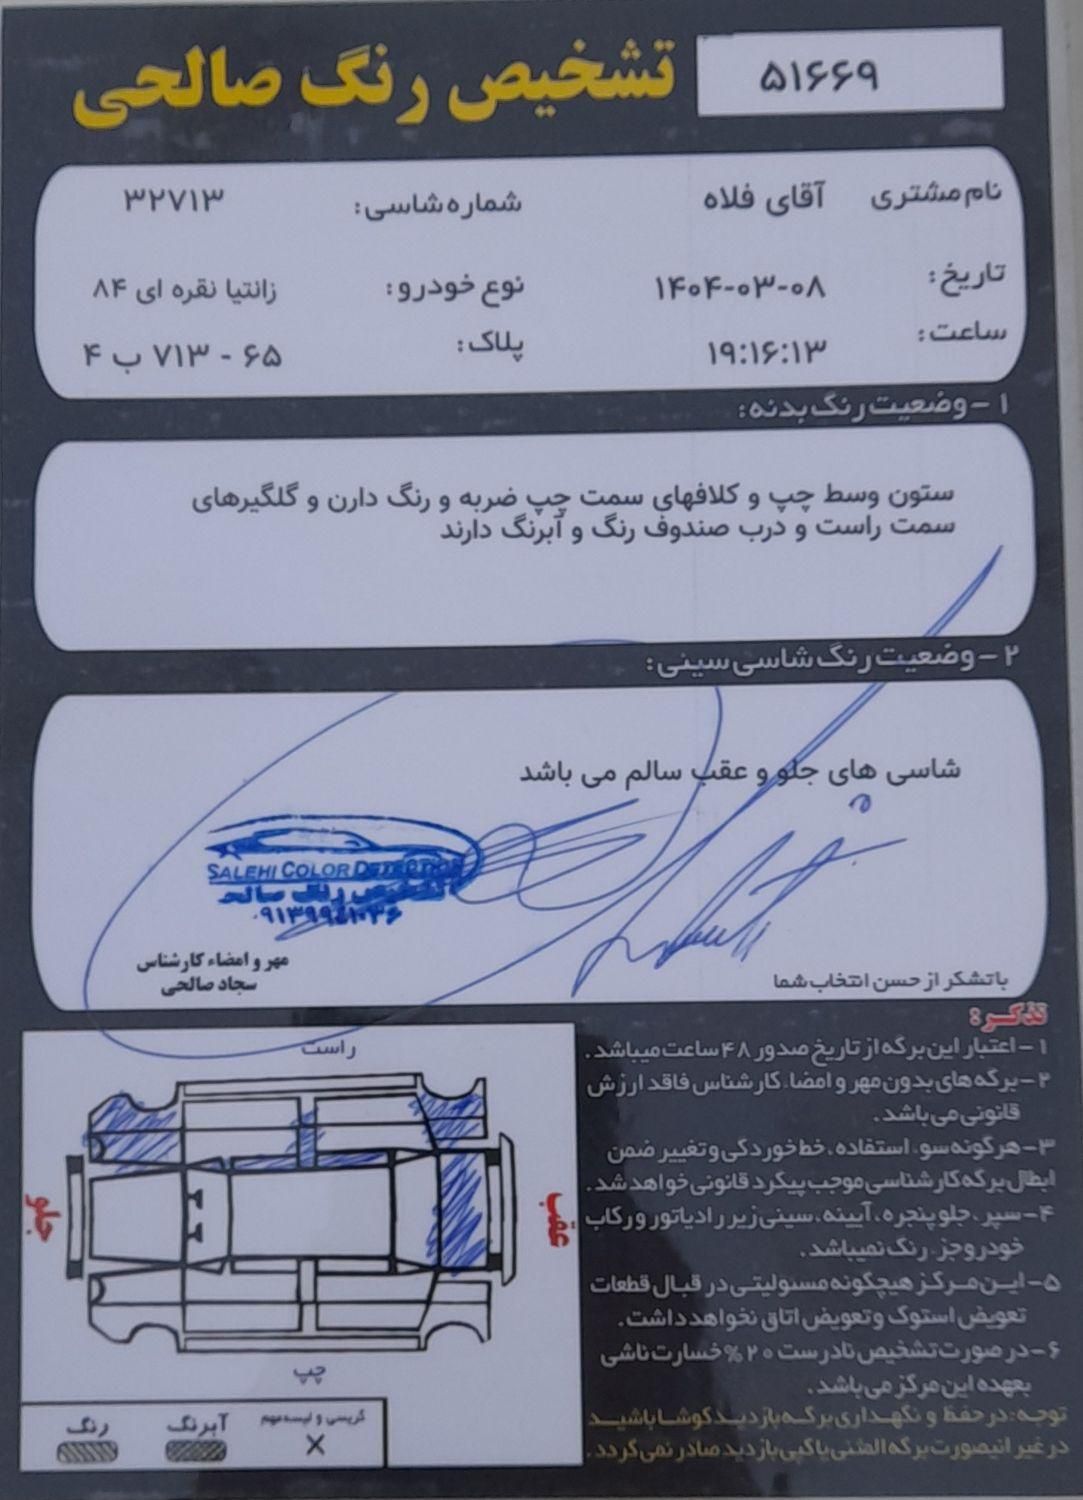 تشخیص رنگ صالحی
۵۱۶۶۹
نام مشتری آقای فلاه
شماره شاسی: ۳۲۷۱۳
تاریخ: ۱۴۰۴-۰۳-۰۸
نوع خودرو: زانتیا نقره ای ۸۴
ساعت: ۱۹:۱۶:۱۳
پلاک: ۶۵ - ۷۱۳ ب ۴
۱- وضعیت رنگ بدنه:
ستون وسط چپ و کلافهای سمت چپ ضربه و رنگ دارن و گلگیرهای
سمت راست و درب صندوف رنگ و آبرنگ دارند
۲- وضعیت رنگ شاسی سینی:
شاسی های جلو و عقب سالم می باشد
SALEHI COLOR DETECTION
تشخیص رنگ صالحی
مهر و امضاء کارشناس
سجاد صالحی
باتشکر از حسن انتخاب شما
تذکر:
۱- اعتبار این برگه از تاریخ صدور ۴۸ ساعت میباشد.
۲- برگه های بدون مهر و امضاء کارشناس فاقد ارزش
قانونی می باشد.
۳- هرگونه سوء استفاده، خط خوردگی و تغییر ضمن
ابطال برگه کارشناسی موجب پیگرد قانونی خواهد شد.
۴- سپر، جلو پنجره، آیینه، سینی زیر رادیاتور و رکاب
خودرو جزء رنگ نمیباشد.
۵- این مرکز هیچگونه مسئولیتی در قبال قطعات
تعویض استوک و تعویض اتاق نخواهد داشت.
۶- در صورت تشخیص نادرست ۲۰% خسارت ناشی
بعهده این مرکز می باشد.
توجه: در حفظ و نگهداری برگه بازدید کوشا باشید
در غیر اینصورت برگه المثنی یا کپی بازدید صادر نمی گردد.
راست
جلو
عقب
چپ
رنگ
آبرنگ
گریسی و لیسه مهم